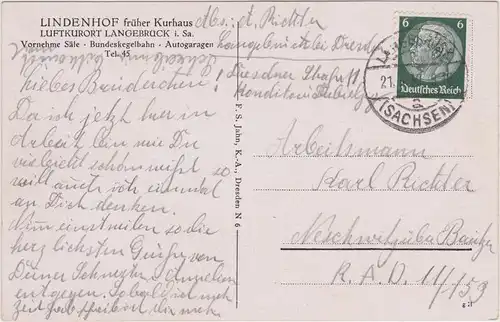 LINDENHOF früher Kurhaus
LUFTKURORT LANGEBRÜCK i. Sa.
Vornehme Säle · Bundeskegelbahn · Autogaragen
Tel. 45
Abs: A. Richter
Langebrück bei Dresden
Dresdner Straße 11
Konditorei
Liebes Brüderchen!
Da ich jetzt hier in
Arbeit bin wie Du
vielleicht schon weißt so
will auch ich einmal
an Dich denken.
Nimm einstweilen so die
herzlichsten Grüße von
Deiner Schwester Annelies
entgegen. Sobald ich mehr
Zeit habe schreibe ich dir mehr.
F. S. Jahn, K.-A., Dresden N 6
6 6
Deutsches Reich
21.
(SACHSEN)
Arbeitsmann
Karl Richter
Neschwitz über Bautzen
R. A. D. 11/153